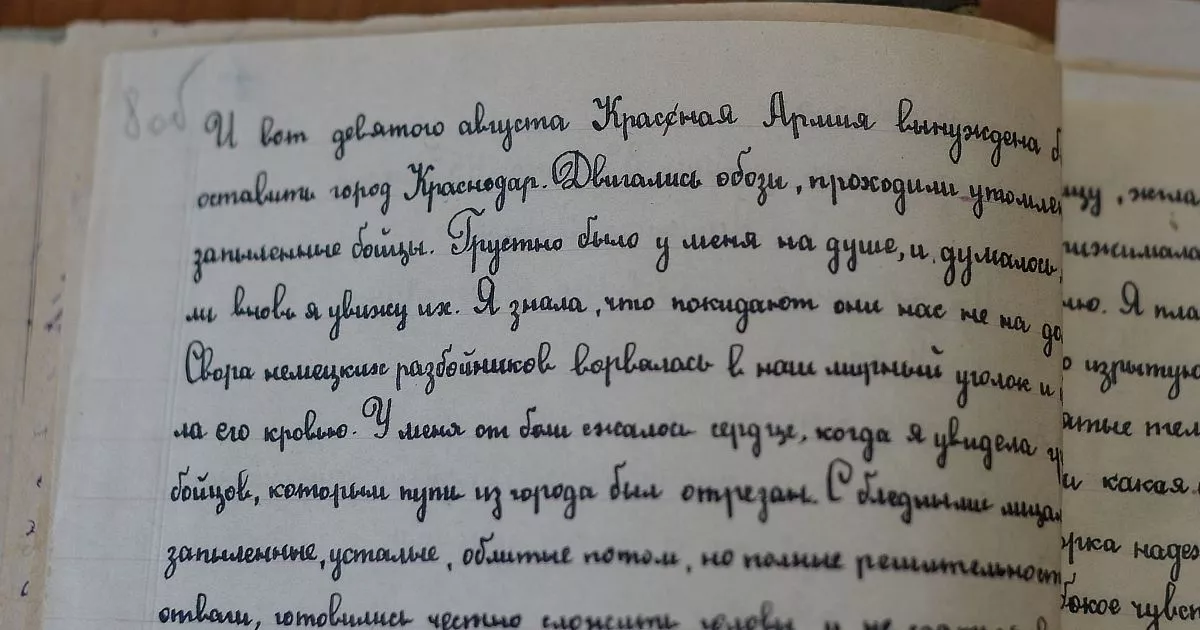 8 об
И вот девятого августа Красная Армия вынуждена б
оставить город Краснодар. Двигались обозы, проходили утомле
запыленные бойцы. Грустно было у меня на душе, и думалось,
ли вновь я увижу их. Я знала, что покидают они нас не на до
Свора немецких разбойников ворвалась в наш мирный уголок и
ла его кровью. У меня от боли сжалось сердце, когда я увидела
бойцов, которым пути из города был отрезан. С бледными лица
запыленные, усталые, облитые потом, но полные решительност
отваги, готовились честно сложить головы и не
щу, жгла
ижимала
ю. Я пла
о изрытую
атые тел
и какая
рка надеж
бокое чувст